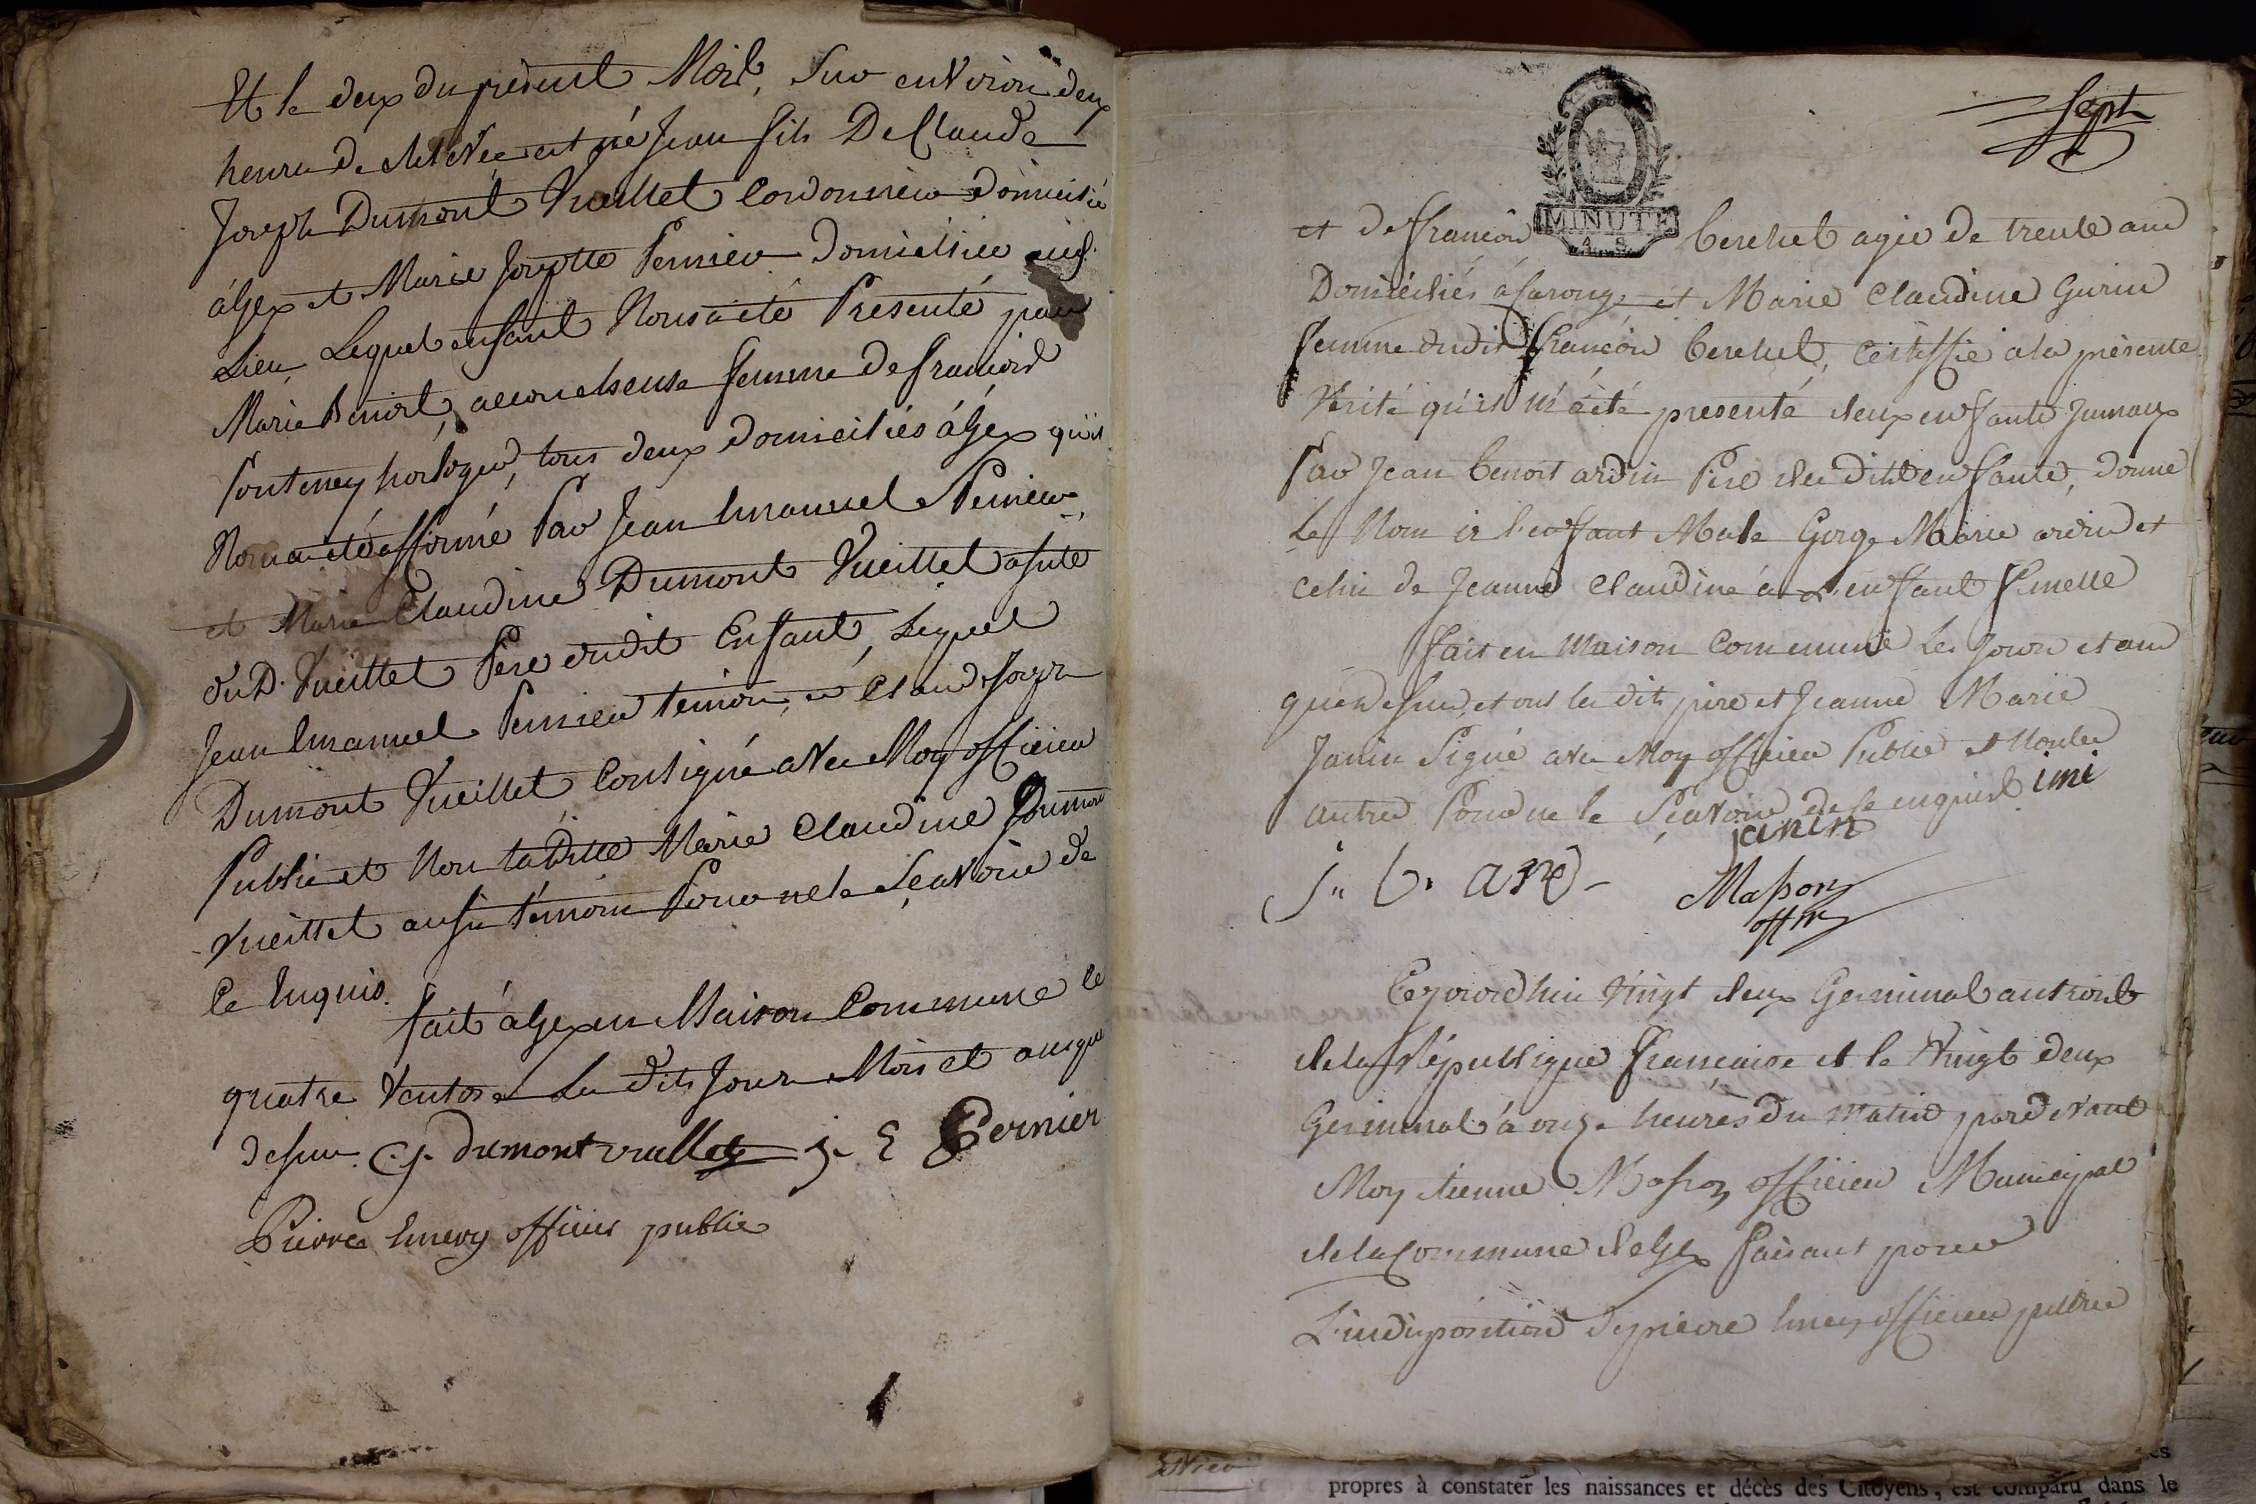 Et le deux du présent Mois, Sur environ deux
heures de relevée est né Jean fils De Claude
Joseph Dumont Vueillet Cordonnier Domicilié
à Gex et Marie Josephte Pernier Domiciliée aud.
Lieu, Lequel enfant Nous a été Présenté par
Marie Benoit, accoucheuse femme de francois
fonteney horloger, tous deux domiciliés à Gex qu'il
Nous a été affirmé Par Jean Emanuel Pernier
et Marie Claudine Dumont Vueillet
du D. Vueillet Père dudit Enfant, Lequel
Jean Emanuel Pernier témoin, et Claude Joseph
Dumont Vueillet Consigné avec Moy officier
Public et Non laditte Marie Claudine Dumont
Vueillet aussi témoin Pour ne le Sçavoir de
Ce Enquis.
fait à Gex en Maison Commune le
quatre Ventose Les dits Jour Mois et an que
dessus. C. J. dumont vuellet J. E Pernier
Pierre Emery officier public
Sept
MINUTE
et de François Berchet agée de trente ans
Domiciliés à et Marie Claudine Gurin
femme dudit François Berchet, Certiffie a la présente
Vérité qu'il m'a été presenté deux enfants Jumaux
Par Jean Benoit ardin Père des dits enfants, donné
Le Nom à l'enfant Male Gorge Marie ardin et
celui de Jeanne Claudine à l'enfant femelle
ffait en Maison Commune Les Jours et an
que dessus, et ont les dits père et Jeanne Marie
Janin Signé avec Moy officier Public et Non les
autres Pour ne le Sçavoir de ce enquis
janin
J. b. ard
Masson
offr
Cejourdhui Vingt deux Germinal an trois
de la République française et le Vingt deux
Germinal à onze heures du matin pardevant
Moy Etienne Masson officier Municipal
de la Commune de Gex faisant pour
L'indisposition de pierre Emery officier public
propres à constater les naissances et décès des Citoyens, est comparu dans le